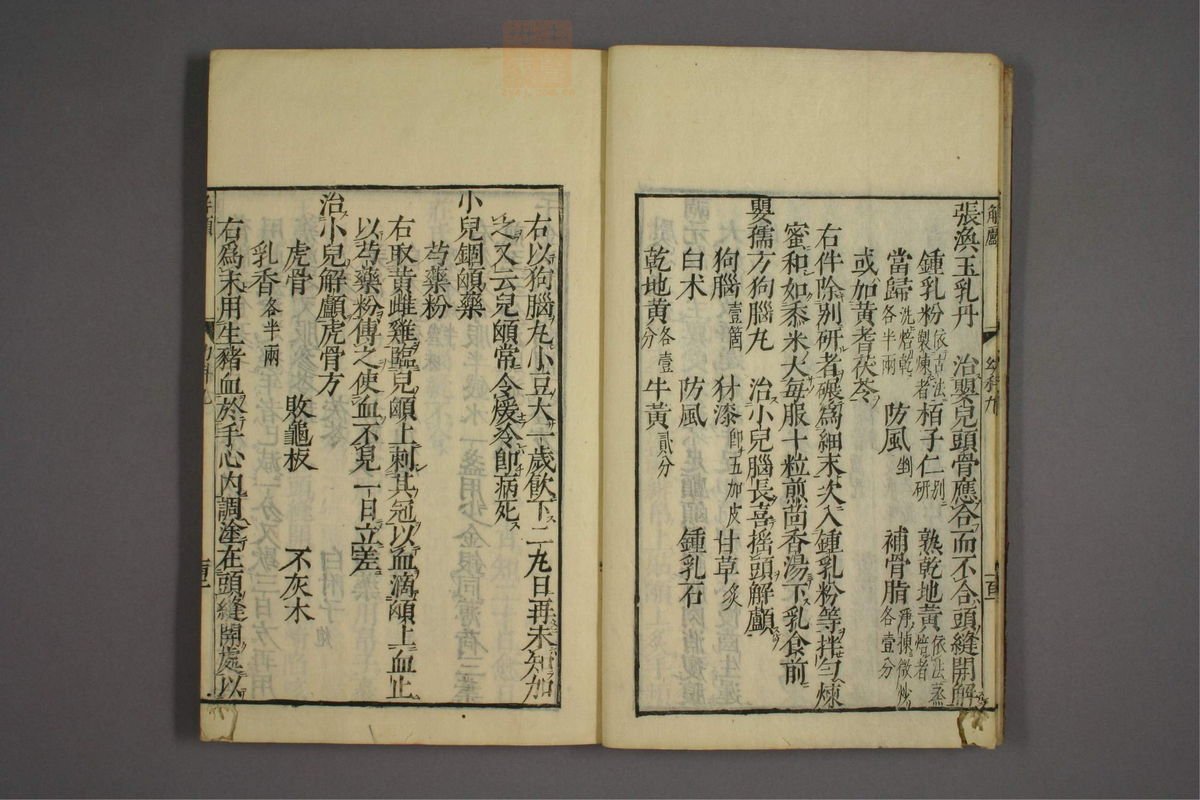 張渙玉乳丹 治嬰兒頭骨應合而不合頭縫開解
鍾乳粉依古法製煉者 栢子仁別研 熟乾地黃依法蒸暨者
當歸洗焙乾各半兩 防風剉 補骨脂淨揀微炒各壹分
或如黃耆茯苓
右件除別研者碾爲細末次入鍾乳粉等拌勻煉
蜜和如黍米大每服十粒煎茴香湯下乳食前
嬰孺方狗腦丸 治小兒腦長喜揺頭解顱
狗腦壹箇 豺漆即五加皮 甘草炙
白朮 防風 鍾乳石
乾地黃各壹分 牛黃貳分
右以狗腦丸小豆大一歲飲下二丸日再未知加
之又云兒頗常令煖冷即病死
小兒錮顖藥
芍藥粉
右取黃雌雞臨兒顖上刺其冠以血滴顖上血止
以芍藥粉傅之使血不見一日立差
治小兒解顱虎骨方
虎骨 敗龜板 不灰木
乳香各半兩
右爲末用生豬血於手心內調塗在頭縫開處以